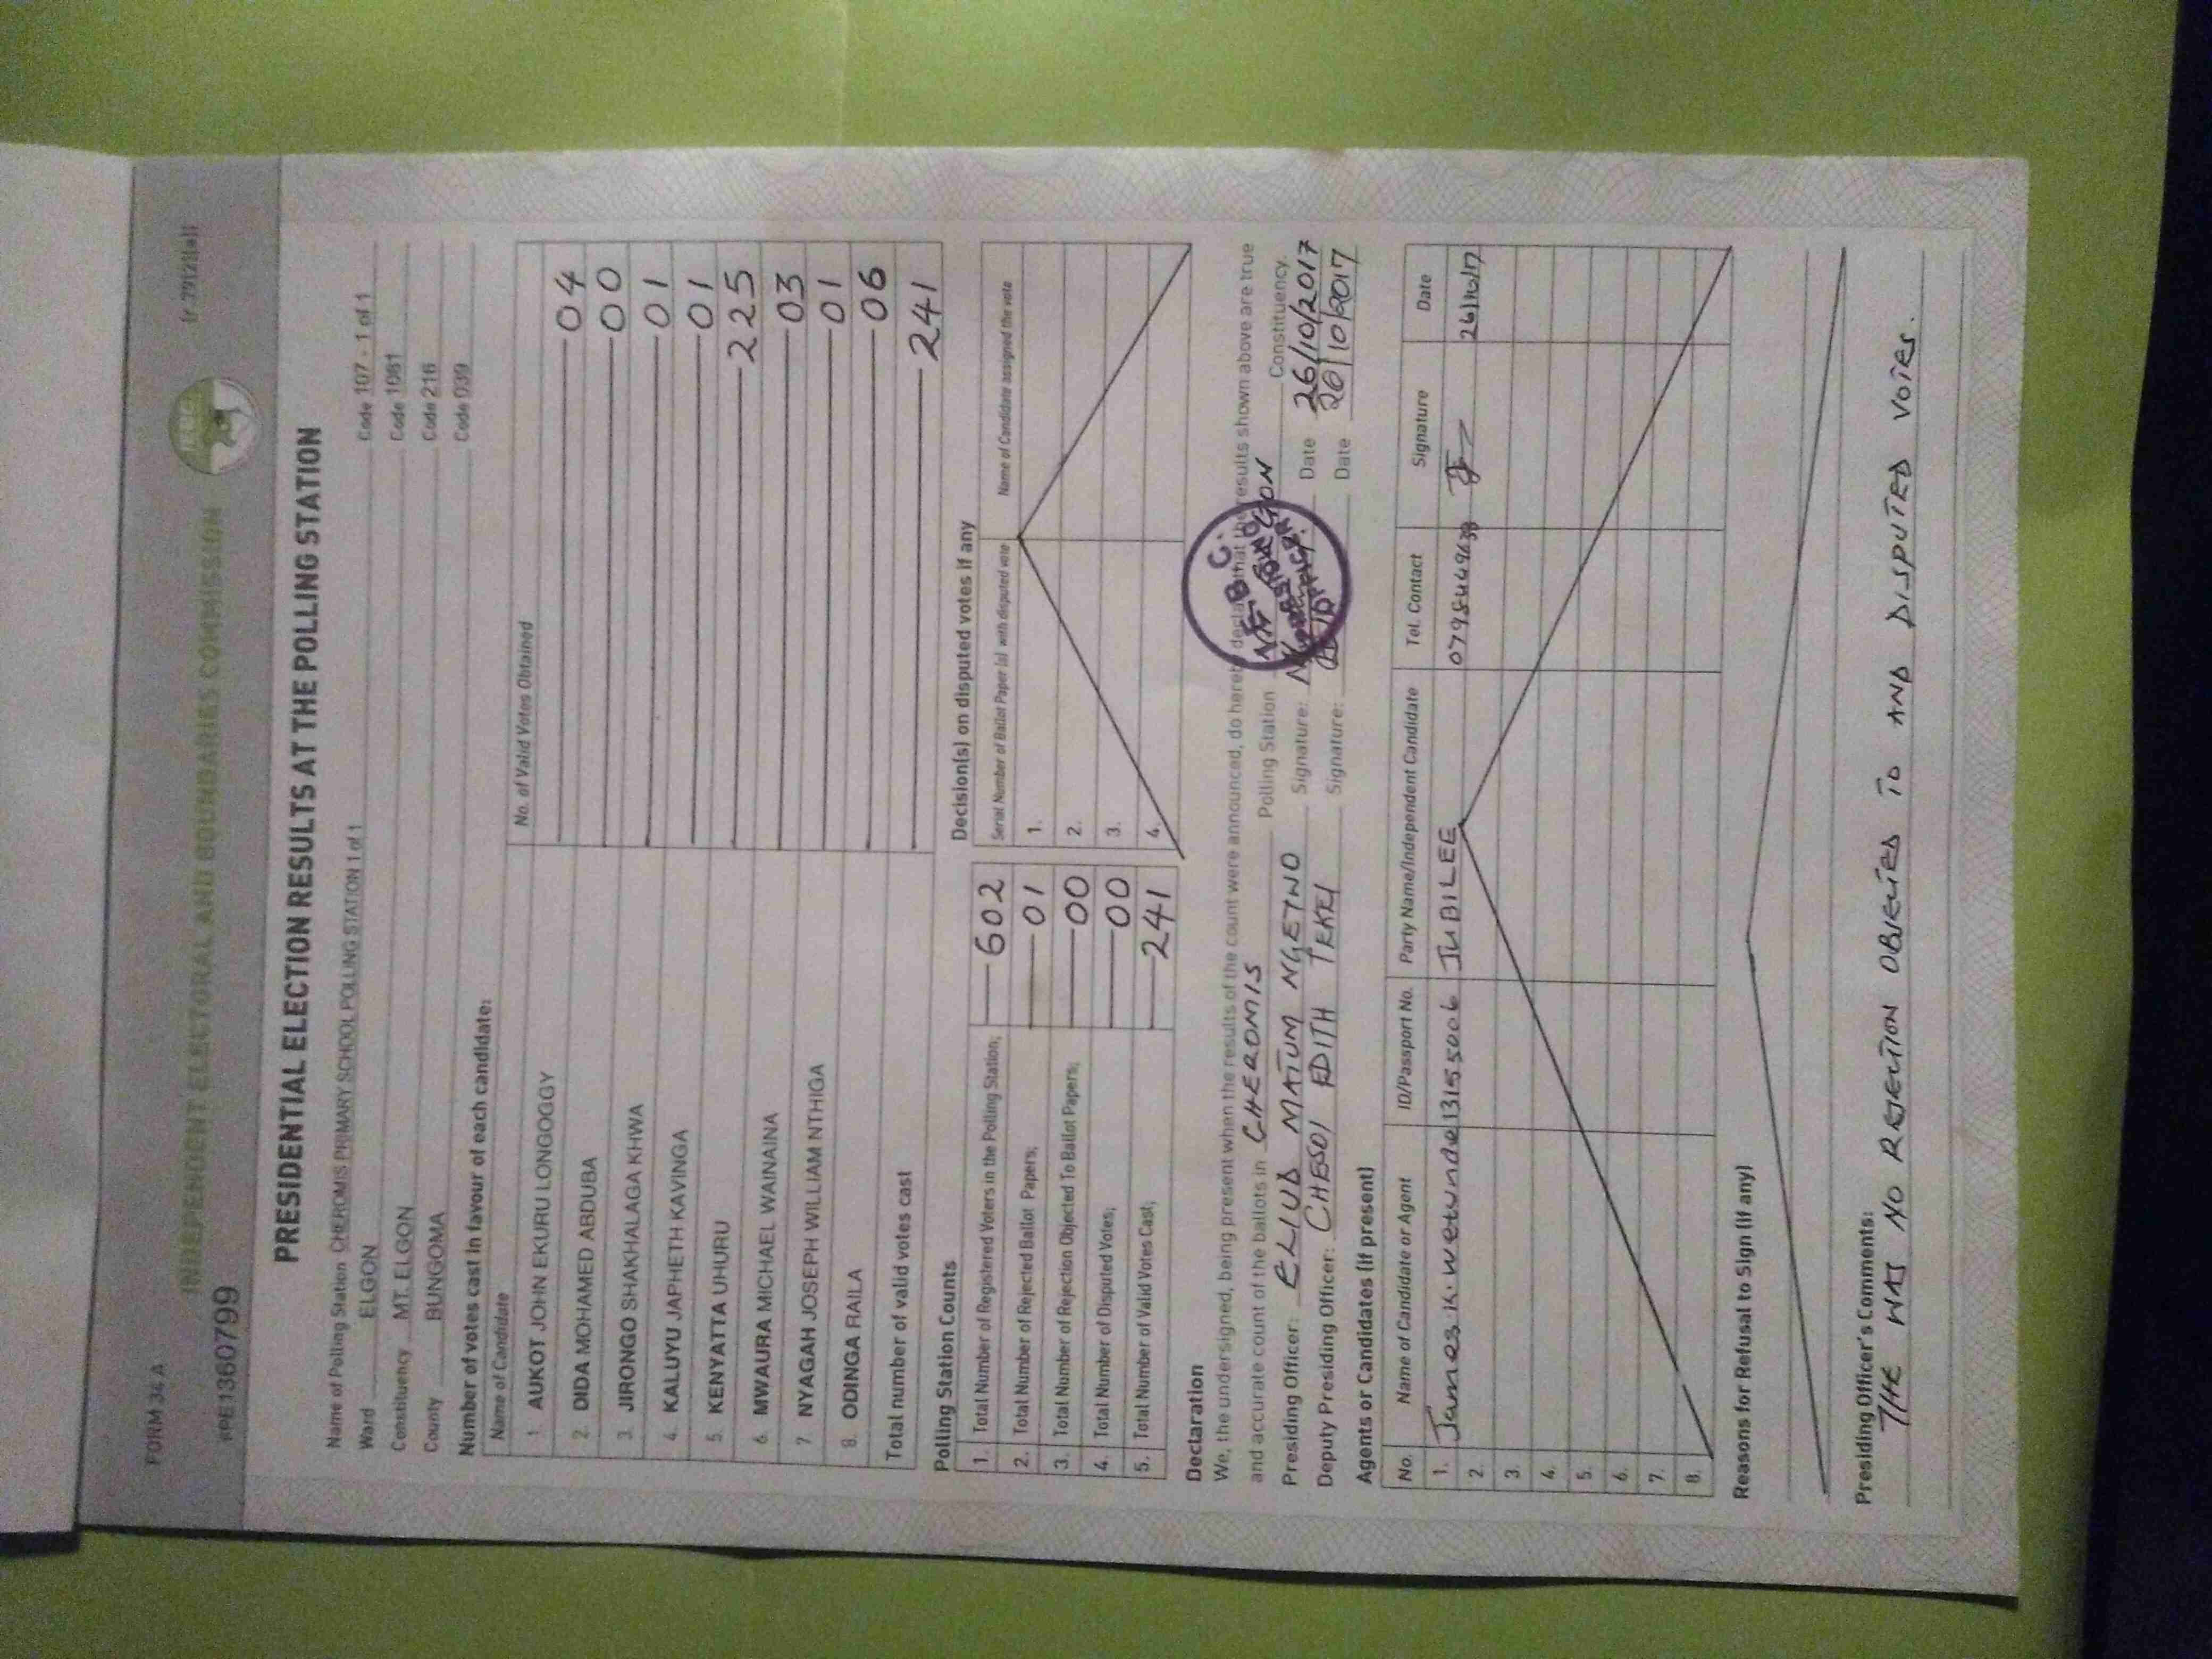 FORM 34 A
(r 79(2)(a))
INDEPENDENT ELECTORAL AND BOUNDARIES COMMISSION
IEBC
PRE1360799
PRESIDENTIAL ELECTION RESULTS AT THE POLLING STATION
Name of Polling Station CHEROMIS PRIMARY SCHOOL POLLING STATION 1 of 1 Code 107 - 1 of 1
Ward ELGON Code 1081
Constituency MT. ELGON Code 216
County BUNGOMA Code 039
Number of votes cast in favour of each candidate:
Name of Candidate No. of Valid Votes Obtained
1 AUKOT JOHN EKURU LONGOGGY 04
2. DIDA MOHAMED ABDUBA 00
3. JIRONGO SHAKHALAGA KHWA 01
4. KALUYU JAPHETH KAVINGA 01
5. KENYATTA UHURU 225
6. MWAURA MICHAEL WAINAINA 03
7 NYAGAH JOSEPH WILLIAM NTHIGA 01
8. ODINGA RAILA 06
Total number of valid votes cast 241
Polling Station Counts
1. Total Number of Registered Voters in the Polling Station; 602
2. Total Number of Rejected Ballot Papers; 01
3. Total Number of Rejection Objected To Ballot Papers; 00
4. Total Number of Disputed Votes; 00
5. Total Number of Valid Votes Cast; 241
Decision(s) on disputed votes if any
Serial Number of Ballot Paper (s) with disputed vote Name of Candidate assigned the vote
1.
2.
3.
4.
Declaration
We, the undersigned, being present when the results of the count were announced, do hereby declare that the results shown above are true
and accurate count of the ballots in CHEROMIS Polling Station Constituency.
Presiding Officer: ELIUD MATUM NGETNO Signature: Date 26/10/2017
Deputy Presiding Officer: CHESOI EDITH TEKEI Signature: Date 26/10/2017
Agents or Candidates (if present)
No. Name of Candidate or Agent ID/Passport No. Party Name/Independent Candidate Tel. Contact Signature Date
1. James.K.wetunde 13155006 JUBILEE 26/10/17
2.
3.
4.
5.
6.
7.
8.
Reasons for Refusal to Sign (if any)
Presiding Officer's Comments:
THE WAS NO REJECTION OBJECTED TO AND DISPUTED VOTES.